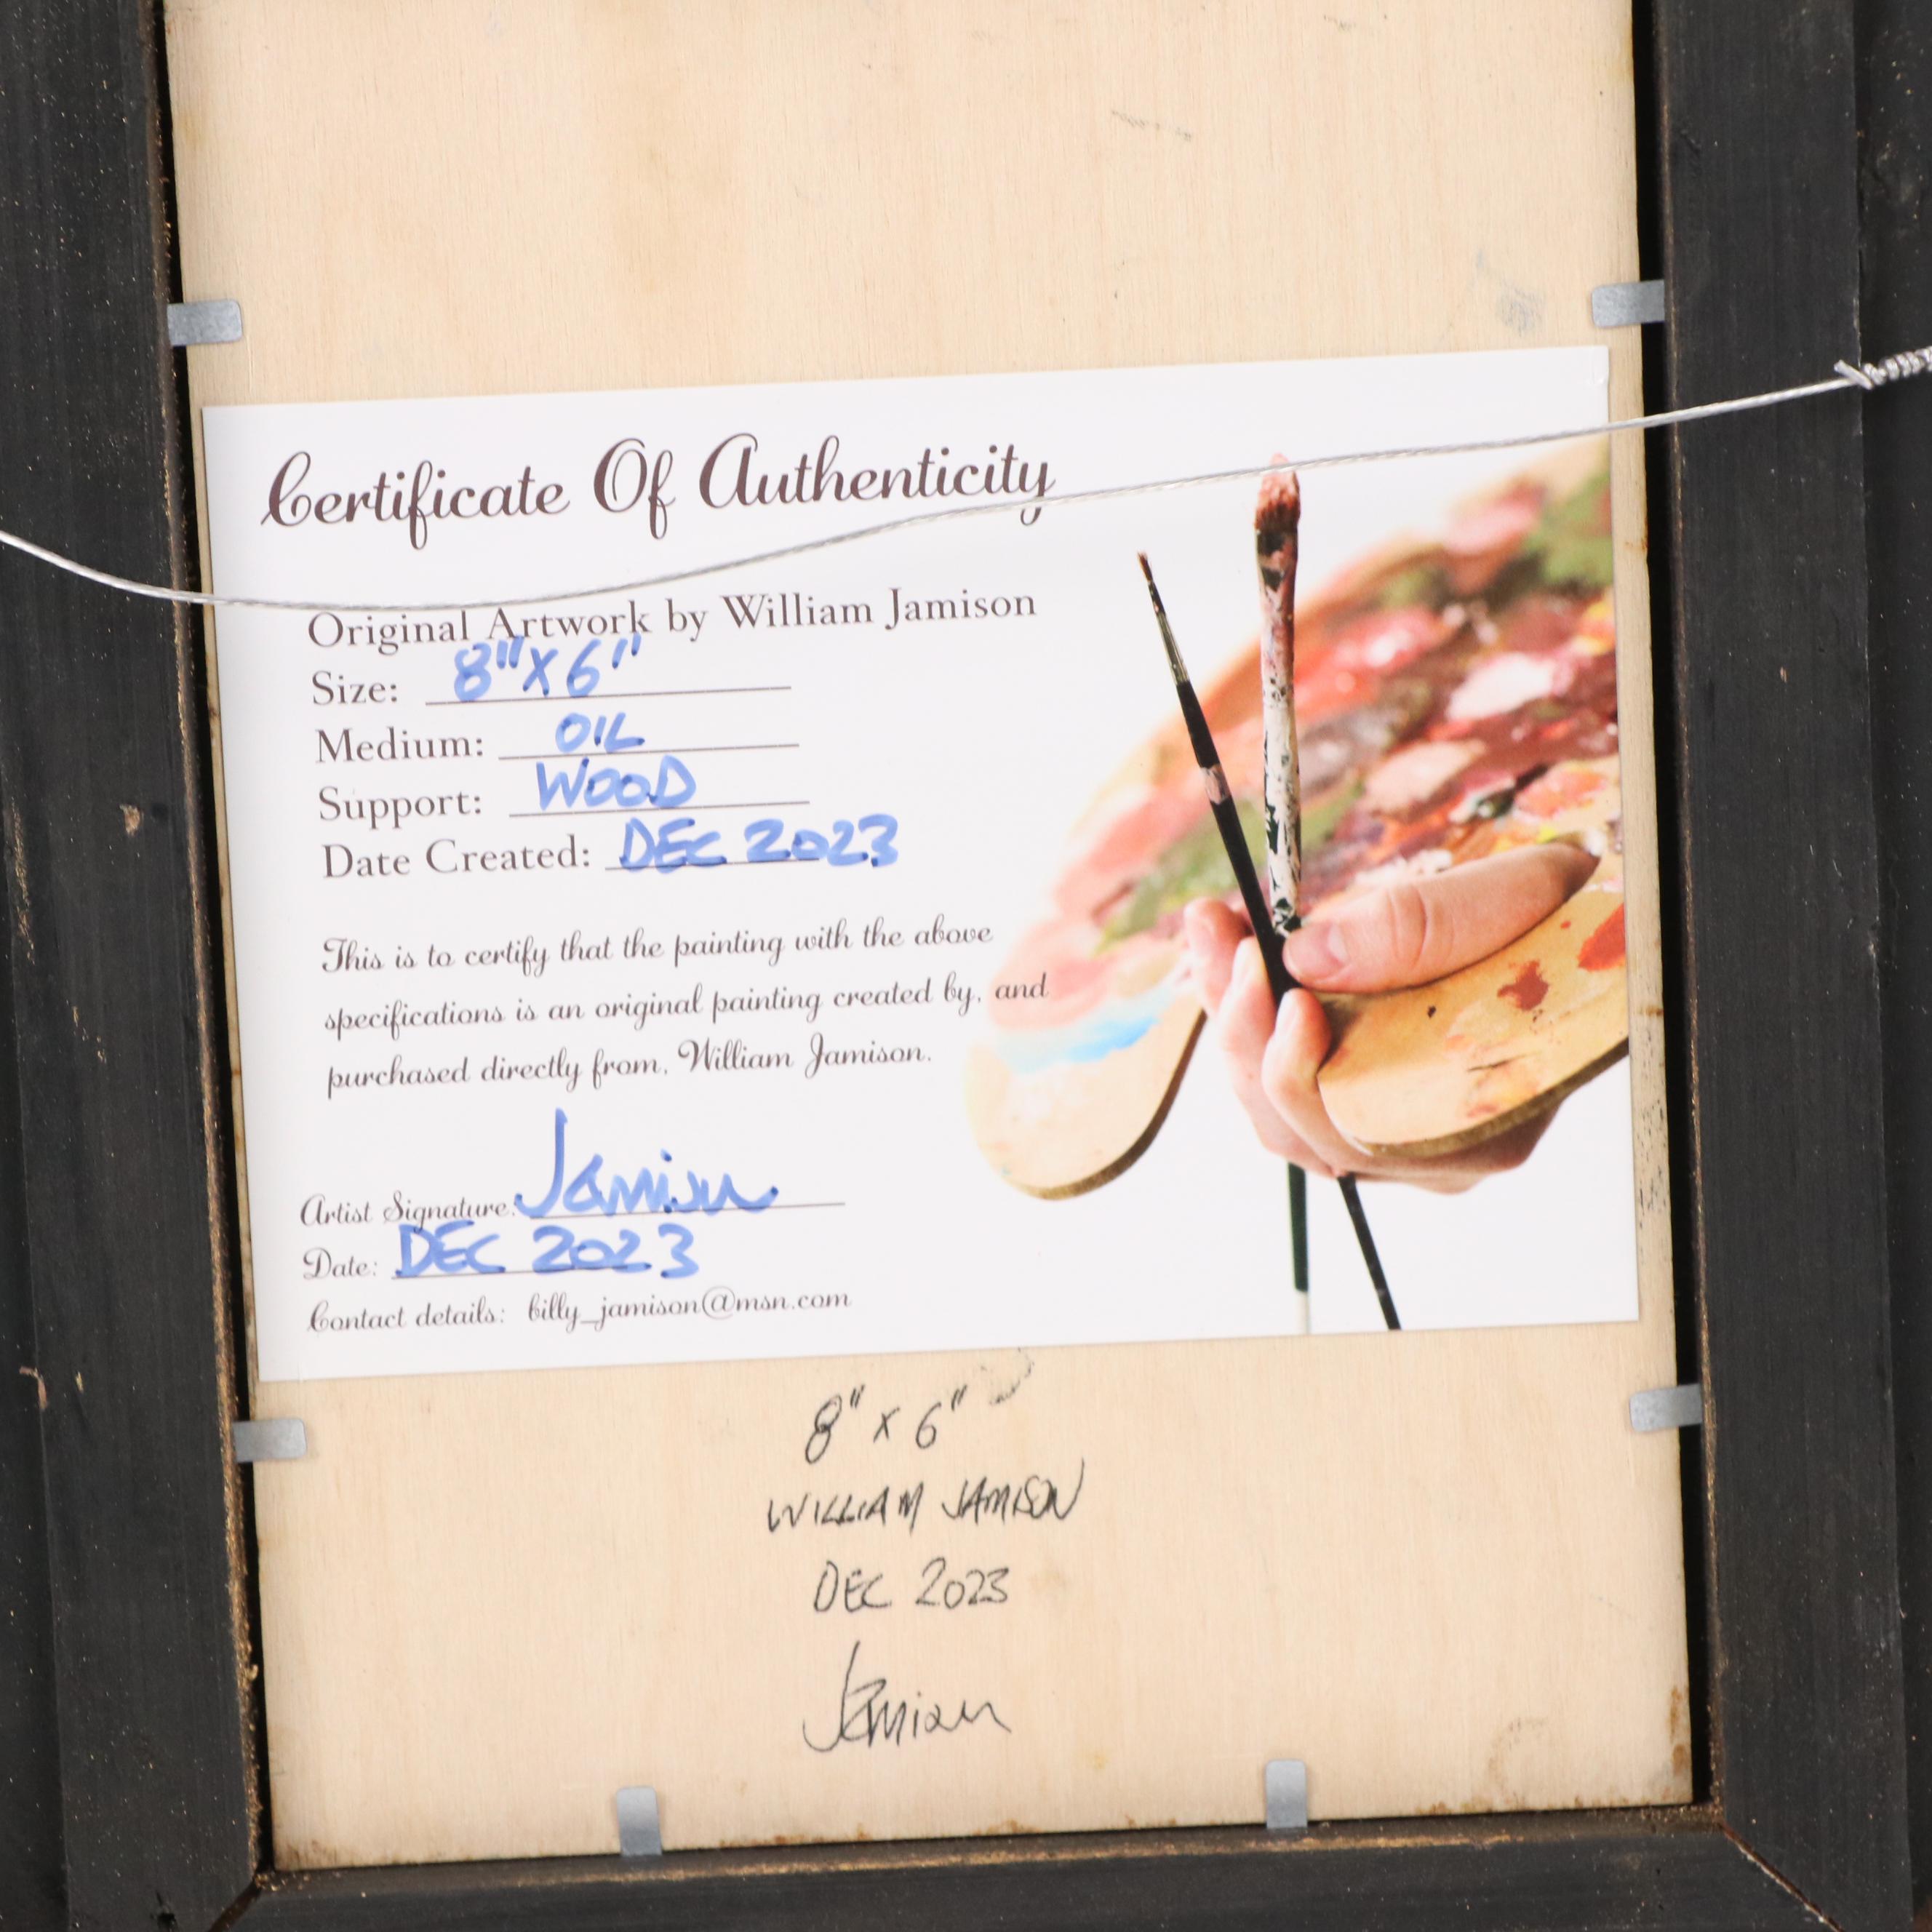 Certificate Of Authenticity
Original Artwork by William Jamison
Size: 8" X 6"
Medium: OIL
Support: WOOD
Date Created: DEC 2023
This is to certify that the painting with the above
specifications is an original painting created by, and
purchased directly from, William Jamison.
Artist Signature: Jamison
Date: DEC 2023
Contact details: billy_jamison@msn.com
8" x 6"
WILLIAM JAMISON
DEC 2023
Jamison